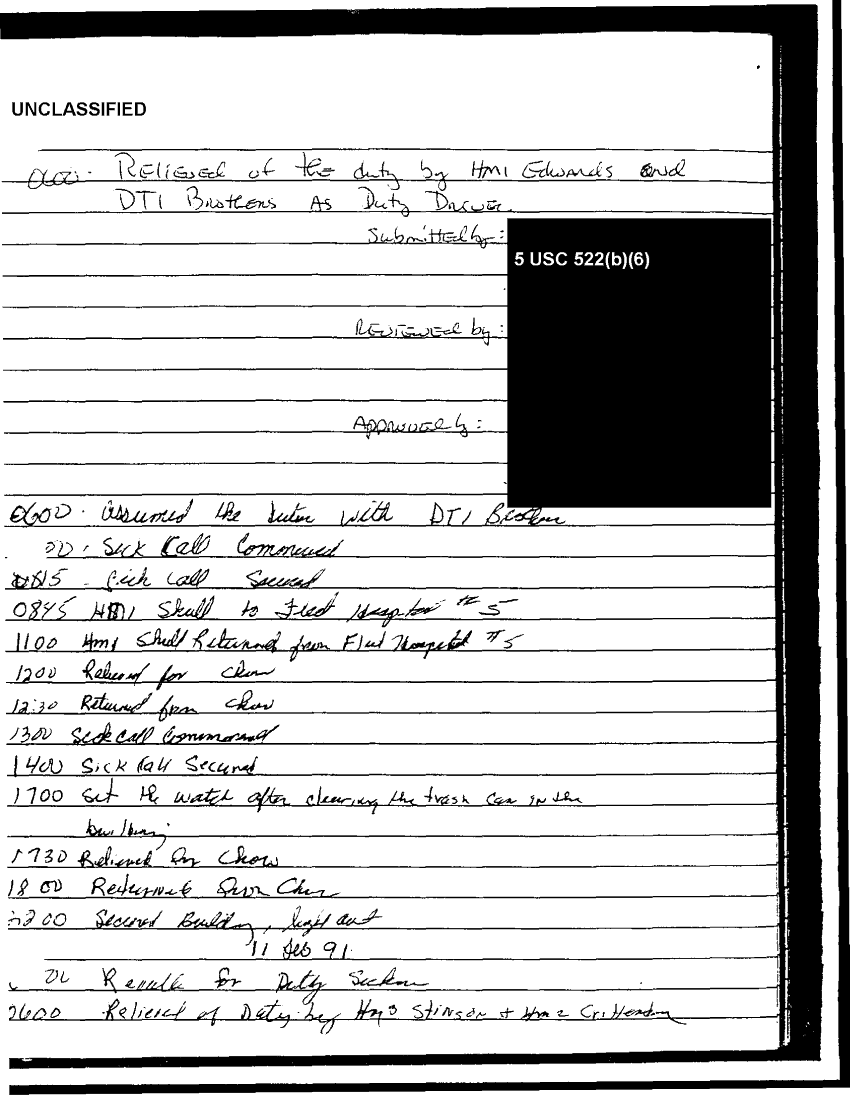 UNCLASSIFIED
Relieved of the duty by HM1 Edwards and
DT1 Brothers As Duty Driver.
Submitted by:
5 USC 522(b)(6)
Reviewed by:
Approved by:
0600. Assumed the with DT1
00: Sick Call Commenced
0815 - Sick Call Secured
0845 HM1 Skull to Fleet Hospital # 5
1100 Hm1 Skull Returned from Fleet Hospital # 5
1200 Relieved for Chow
12:30 Returned from Chow
1300 Sick Call Commenced
1400 Sick Call Secured
1700 Set the watch after clearing the trash can in the
building
1730 Relieved for Chow
1800 Returned from Chow
2200 Secured Building, light out
11 Feb 91
Reveille for Duty Section
Relieved of Duty by Hm3 Stinson + Hm2 Crittendon